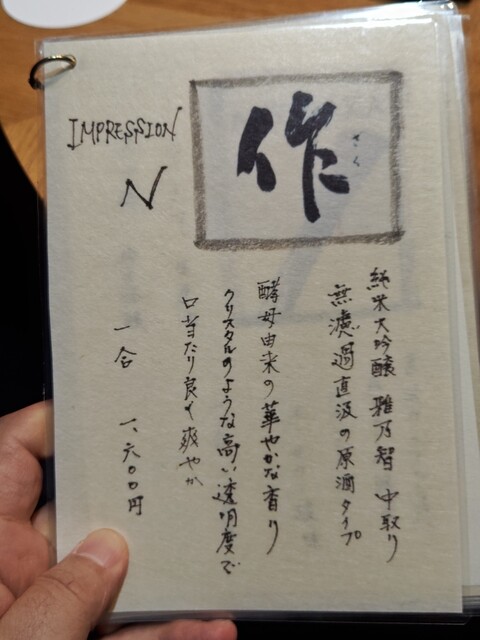 作
さく
IMPRESSION
N
純米大吟醸 雅乃智 中取り
無濾過直汲の原酒タイプ
酵母由来の華やかな香り
クリスタルのような高い透明度で
口当たり良く爽やか
一合 一、六〇〇円